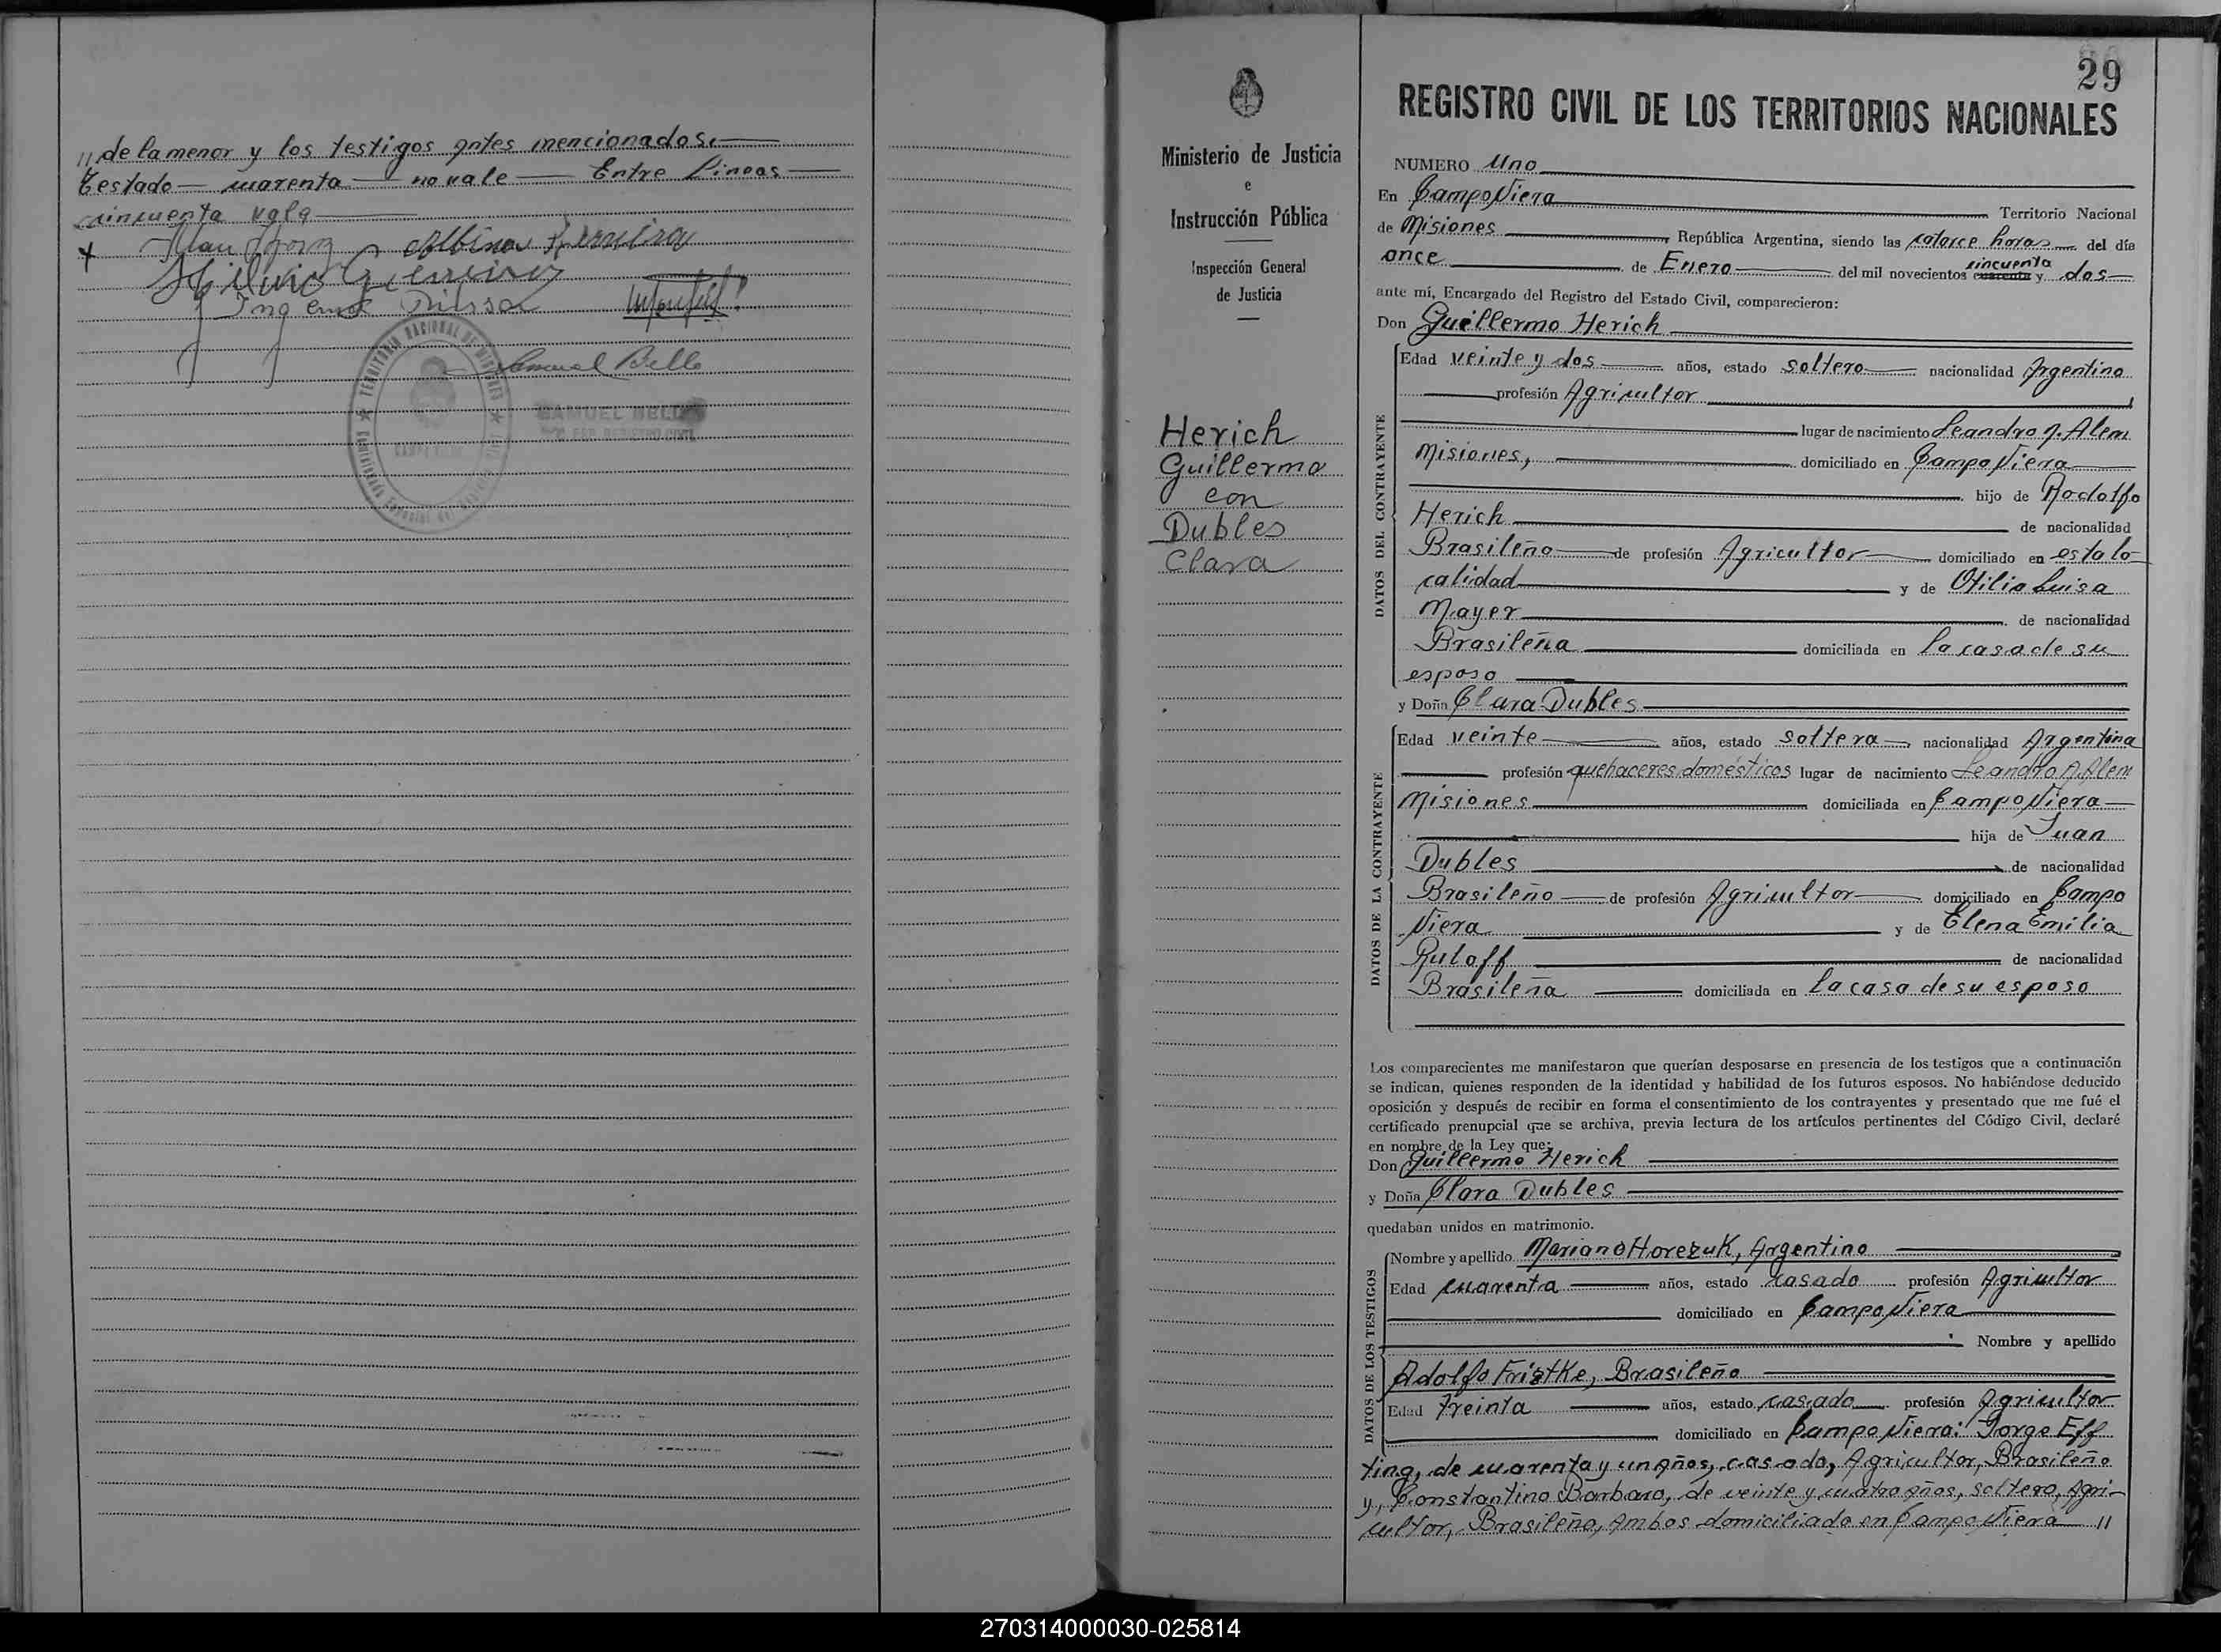 // de la menor y los testigos antes mencionados.
Testado — cuarenta — no vale — Entre Lineas —
cincuenta vale
Albino Ferreira
Samuel Bello
TERRITORIO NACIONAL DE MISIONES
SAMUEL BELLO
29
REGISTRO CIVIL DE LOS TERRITORIOS NACIONALES
Ministerio de Justicia
e
Instrucción Pública
Inspección General
de Justicia
Herich
Guillermo
con
Dubles
Clara
NUMERO Uno
En Campo Viera Territorio Nacional
de Misiones República Argentina, siendo las catorce horas del día
cincuenta
once de Enero del mil novecientos cuarenta y dos
ante mí, Encargado del Registro del Estado Civil, comparecieron:
Don Guillermo Herich
DATOS DEL CONTRAYENTE
Edad veinte y dos años, estado soltero nacionalidad Argentino
profesión Agricultor
lugar de nacimiento Leandro N. Alem
Misiones, domiciliado en Campo Viera
hijo de Rodolfo
Herich de nacionalidad
Brasileño de profesión Agricultor domiciliado en esta lo-
calidad y de Otilia Luisa
Mayer de nacionalidad
Brasileña domiciliada en la casa de su
esposo
y Doña Clara Dubles
DATOS DE LA CONTRAYENTE
Edad veinte años, estado soltera nacionalidad Argentina
profesión quehaceres domésticos lugar de nacimiento Leandro N. Alem
Misiones domiciliada en Campo Viera
hija de Juan
Dubles de nacionalidad
Brasileño de profesión Agricultor domiciliado en Campo
Viera y de Elena Emilia
Rulaff de nacionalidad
Brasileña domiciliada en la casa de su esposo
Los comparecientes me manifestaron que querían desposarse en presencia de los testigos que a continuación
se indican, quienes responden de la identidad y habilidad de los futuros esposos. No habiéndose deducido
oposición y después de recibir en forma el consentimiento de los contrayentes y presentado que me fué el
certificado prenupcial que se archiva, previa lectura de los artículos pertinentes del Código Civil, declaré
en nombre de la Ley que:
Don Guillermo Herich
y Doña Clara Dubles
quedaban unidos en matrimonio.
DATOS DE LOS TESTIGOS
Nombre y apellido Mariano Horezuk, Argentino
Edad cuarenta años, estado casado profesión Agricultor
domiciliado en Campo Viera
Nombre y apellido
Adolfo Fristke, Brasileño
Edad treinta años, estado casado profesión Agricultor
domiciliado en Campo Viera: Jorge Eff
ting, de cuarenta y un años, casado, Agricultor, Brasileño
y, Constantino Barbaro, de veinte y cuatro años, soltero, Agri-
cultor, Brasileño, Ambos domiciliado en Campo Viera //
270314000030-025814